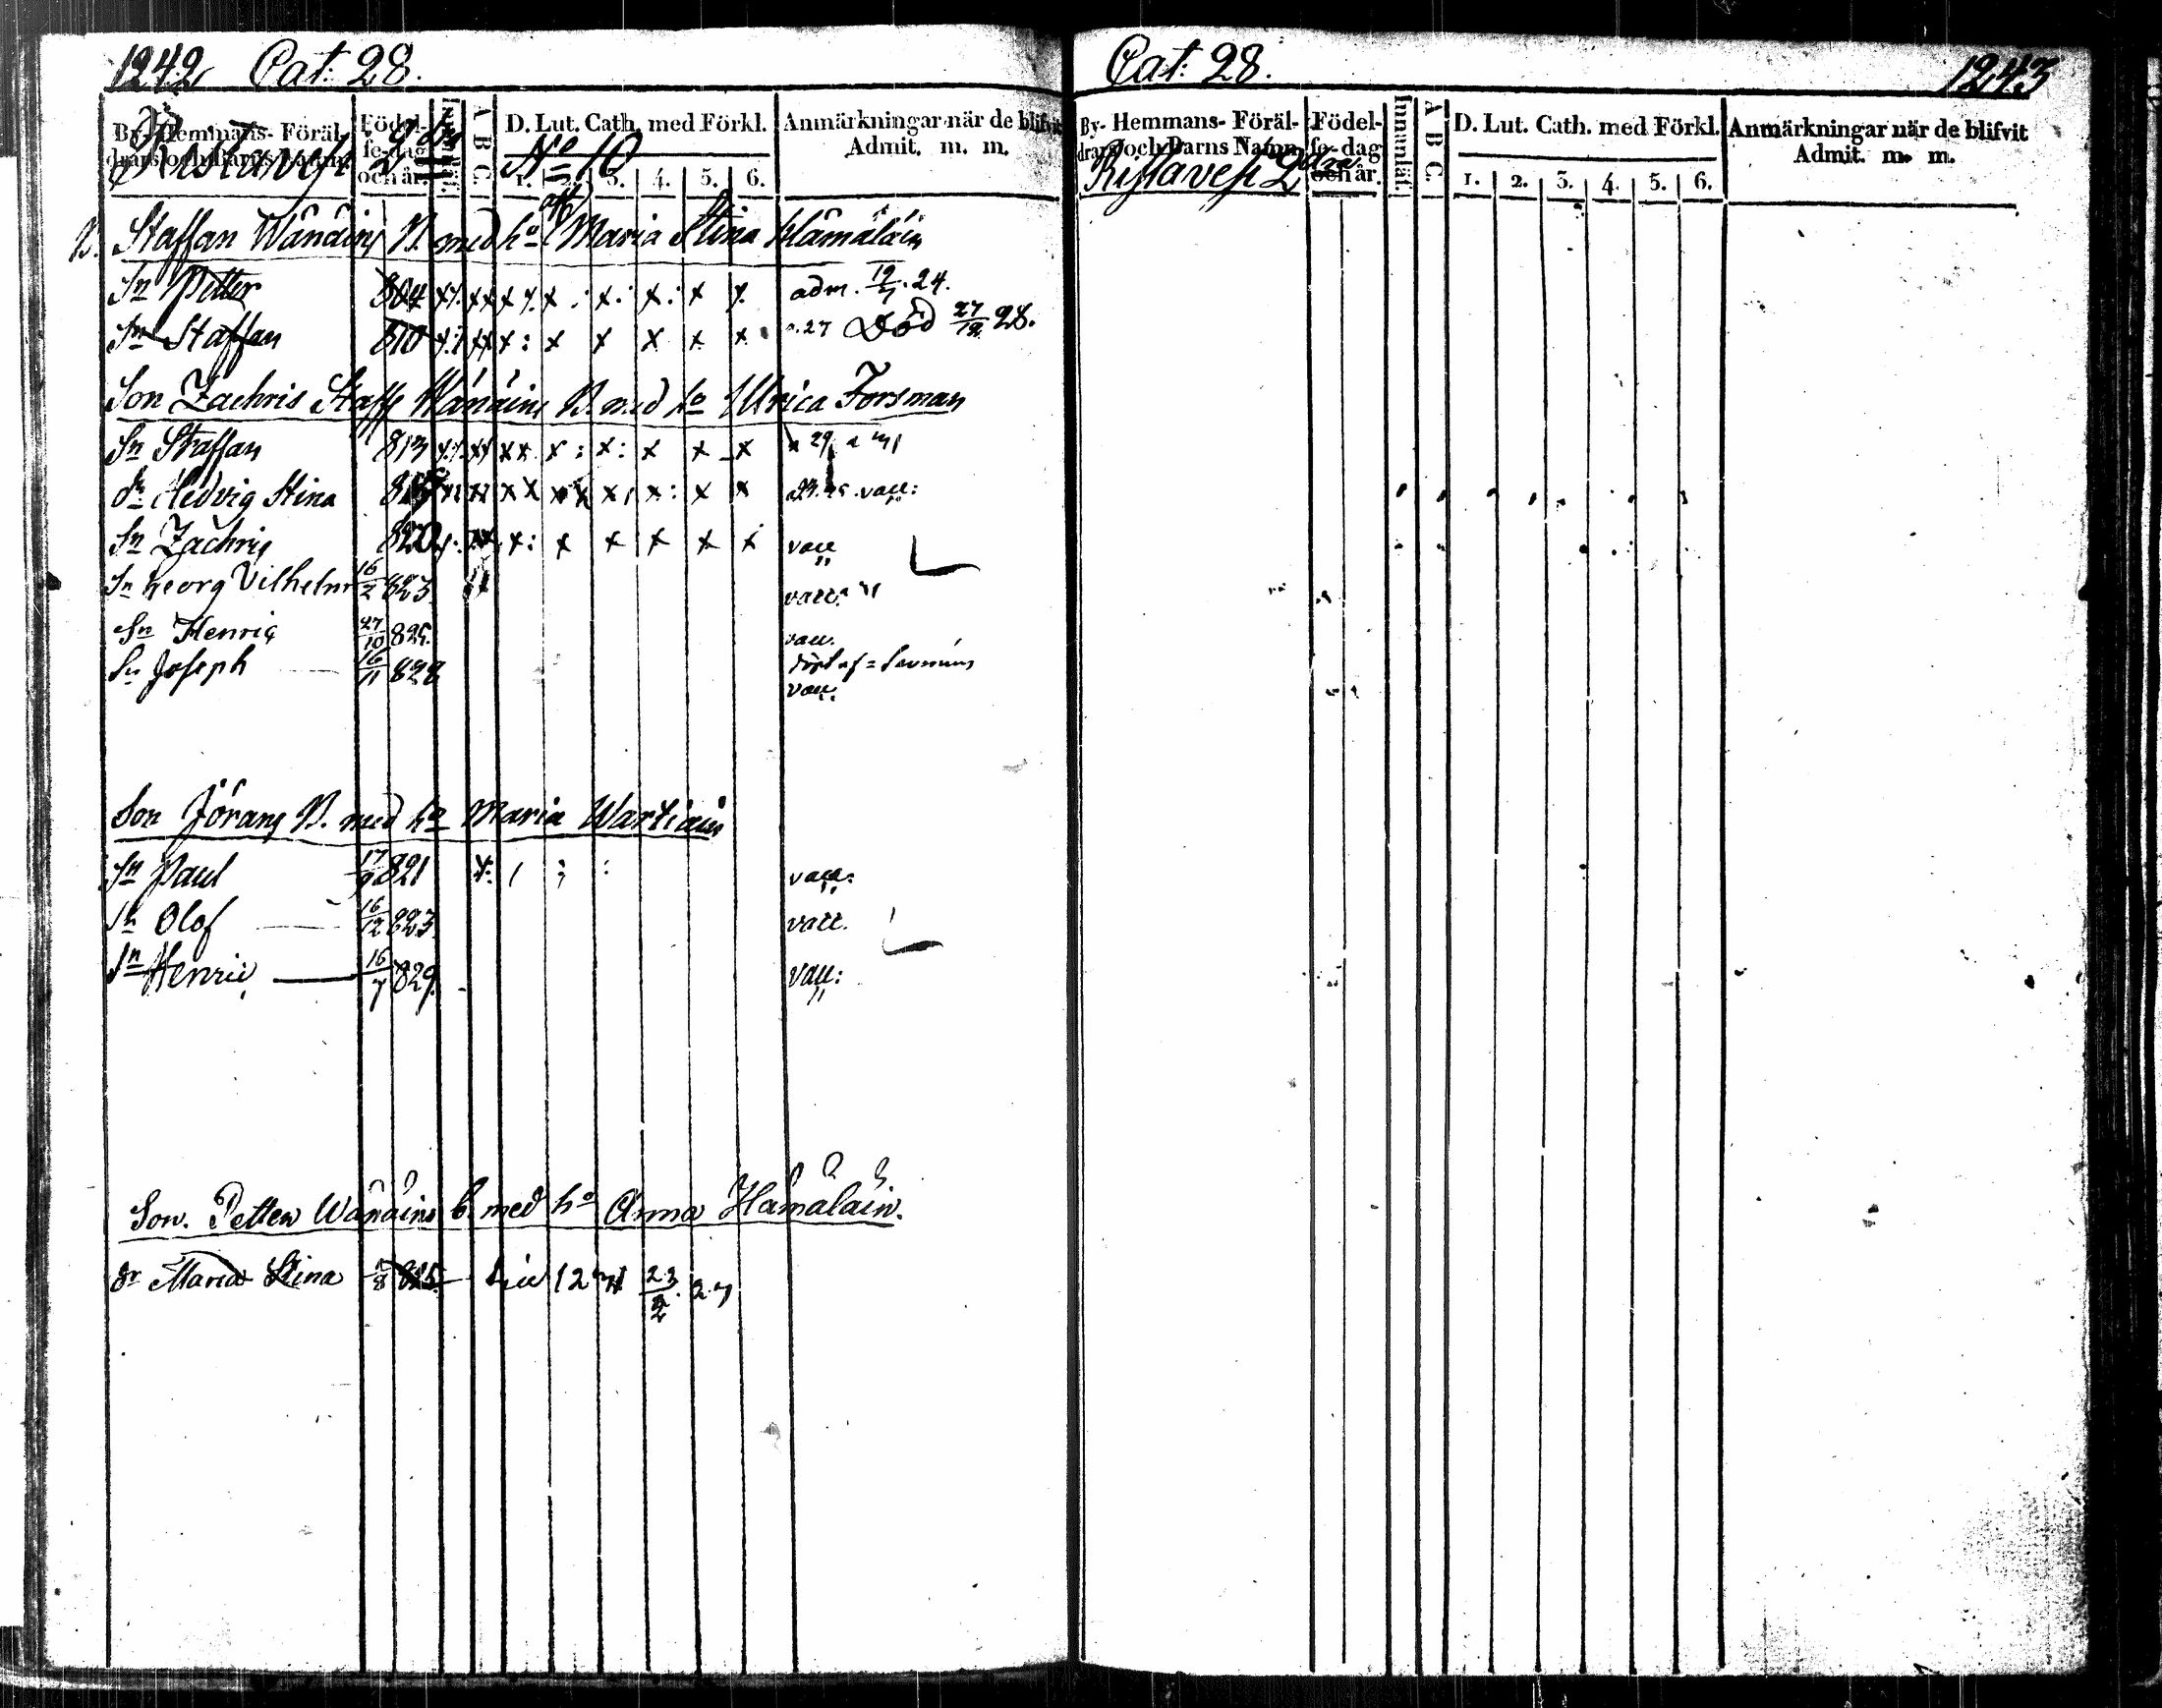 1242 Cat: 28.
By- Hemmans- Föräl- Födel- A B C. D. Lut. Cath. med Förkl. Anmärkningar när de blifvit
drars och Barns Namn se-dag och år. 1. 2. 3. 4. 5. 6. Admit. m. m.
Ristavesi 2 dra No 10
B. Staffan Wänäin B. med ho Maria Stina Hämäläin
Sn Petter 804 x x x x x x x adm. 12/7. 24.
Sn Staffan 810 x x x x x x .27 Död 27/12 28.
Son Zachris Staff Wänäin B. med ho Ulrica Forsman
Sn Staffan 813 x x x x x x
dr Hedvig Stina x x x x x x vacc:
Sn Zachris 820 x x x x x x vacc
Sn Georg Vilhelm 16/2 823 vacc:
Sn Henric 27/10 825. vacc.
Sn Joseph 16/11 828
vacc:
Son Jöran B. med ho Maria Wartiain
Sn Paul 17/9 821 vacc:
Sn Olof 16/12 823 vacc.
Sn Henric 16/7 829. vacc:
Son. Petter Wänäin b. med ho Anna Hämäläin.
dr Maria Stina 1/8 825. 23/2. 27
Cat: 28. 1243
By- Hemmans- Föräl- Födel- Innanläs. A B C. D. Lut. Cath. med Förkl. Anmärkningar när de blifvit
drars och Barns Namn se-dag och år. 1. 2. 3. 4. 5. 6. Admit. m. m.
Ristavesi 2 dra